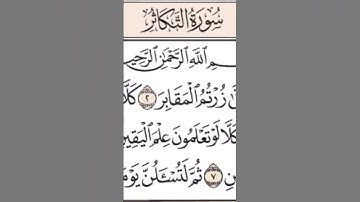 سُورَةُ التَّكَاثُرِ
ـمِ اللَّهِ الرَّحْمَٰنِ الرَّحِيـ
زُرْتُمُ الْمَقَابِرَ ٢ كَلَّا
كَلَّا لَوْ تَعْلَمُونَ عِلْمَ الْيَقِيـ
ـنِ ٧ ثُمَّ لَتُسْـَٔلُنَّ يَوْمَ